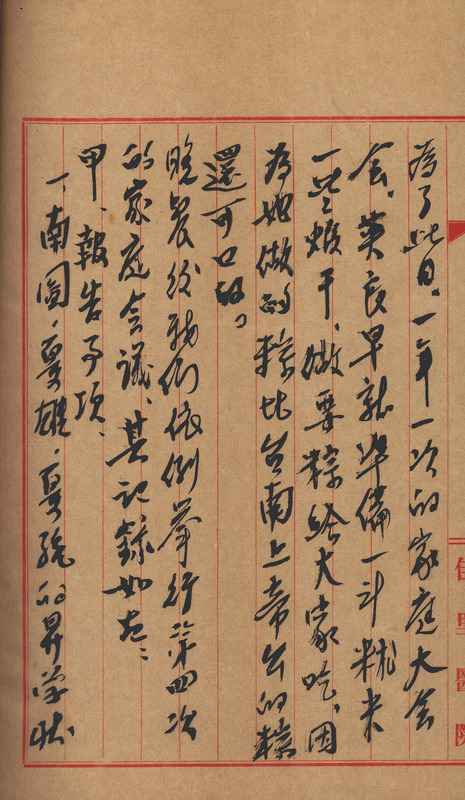 佳里醫院
為了此日、一年一次的家庭大会
会、英良早就準備一斗秫米
一些蝦干、做要粽給大家吃、因
為她做的粽比台南上帝公的粽
還可口的。
晚餐後我們依例举行第四次
的家庭会議、其記錄如左：
甲、報告事項、
一、南圖、夏雄、夏統的昇学状